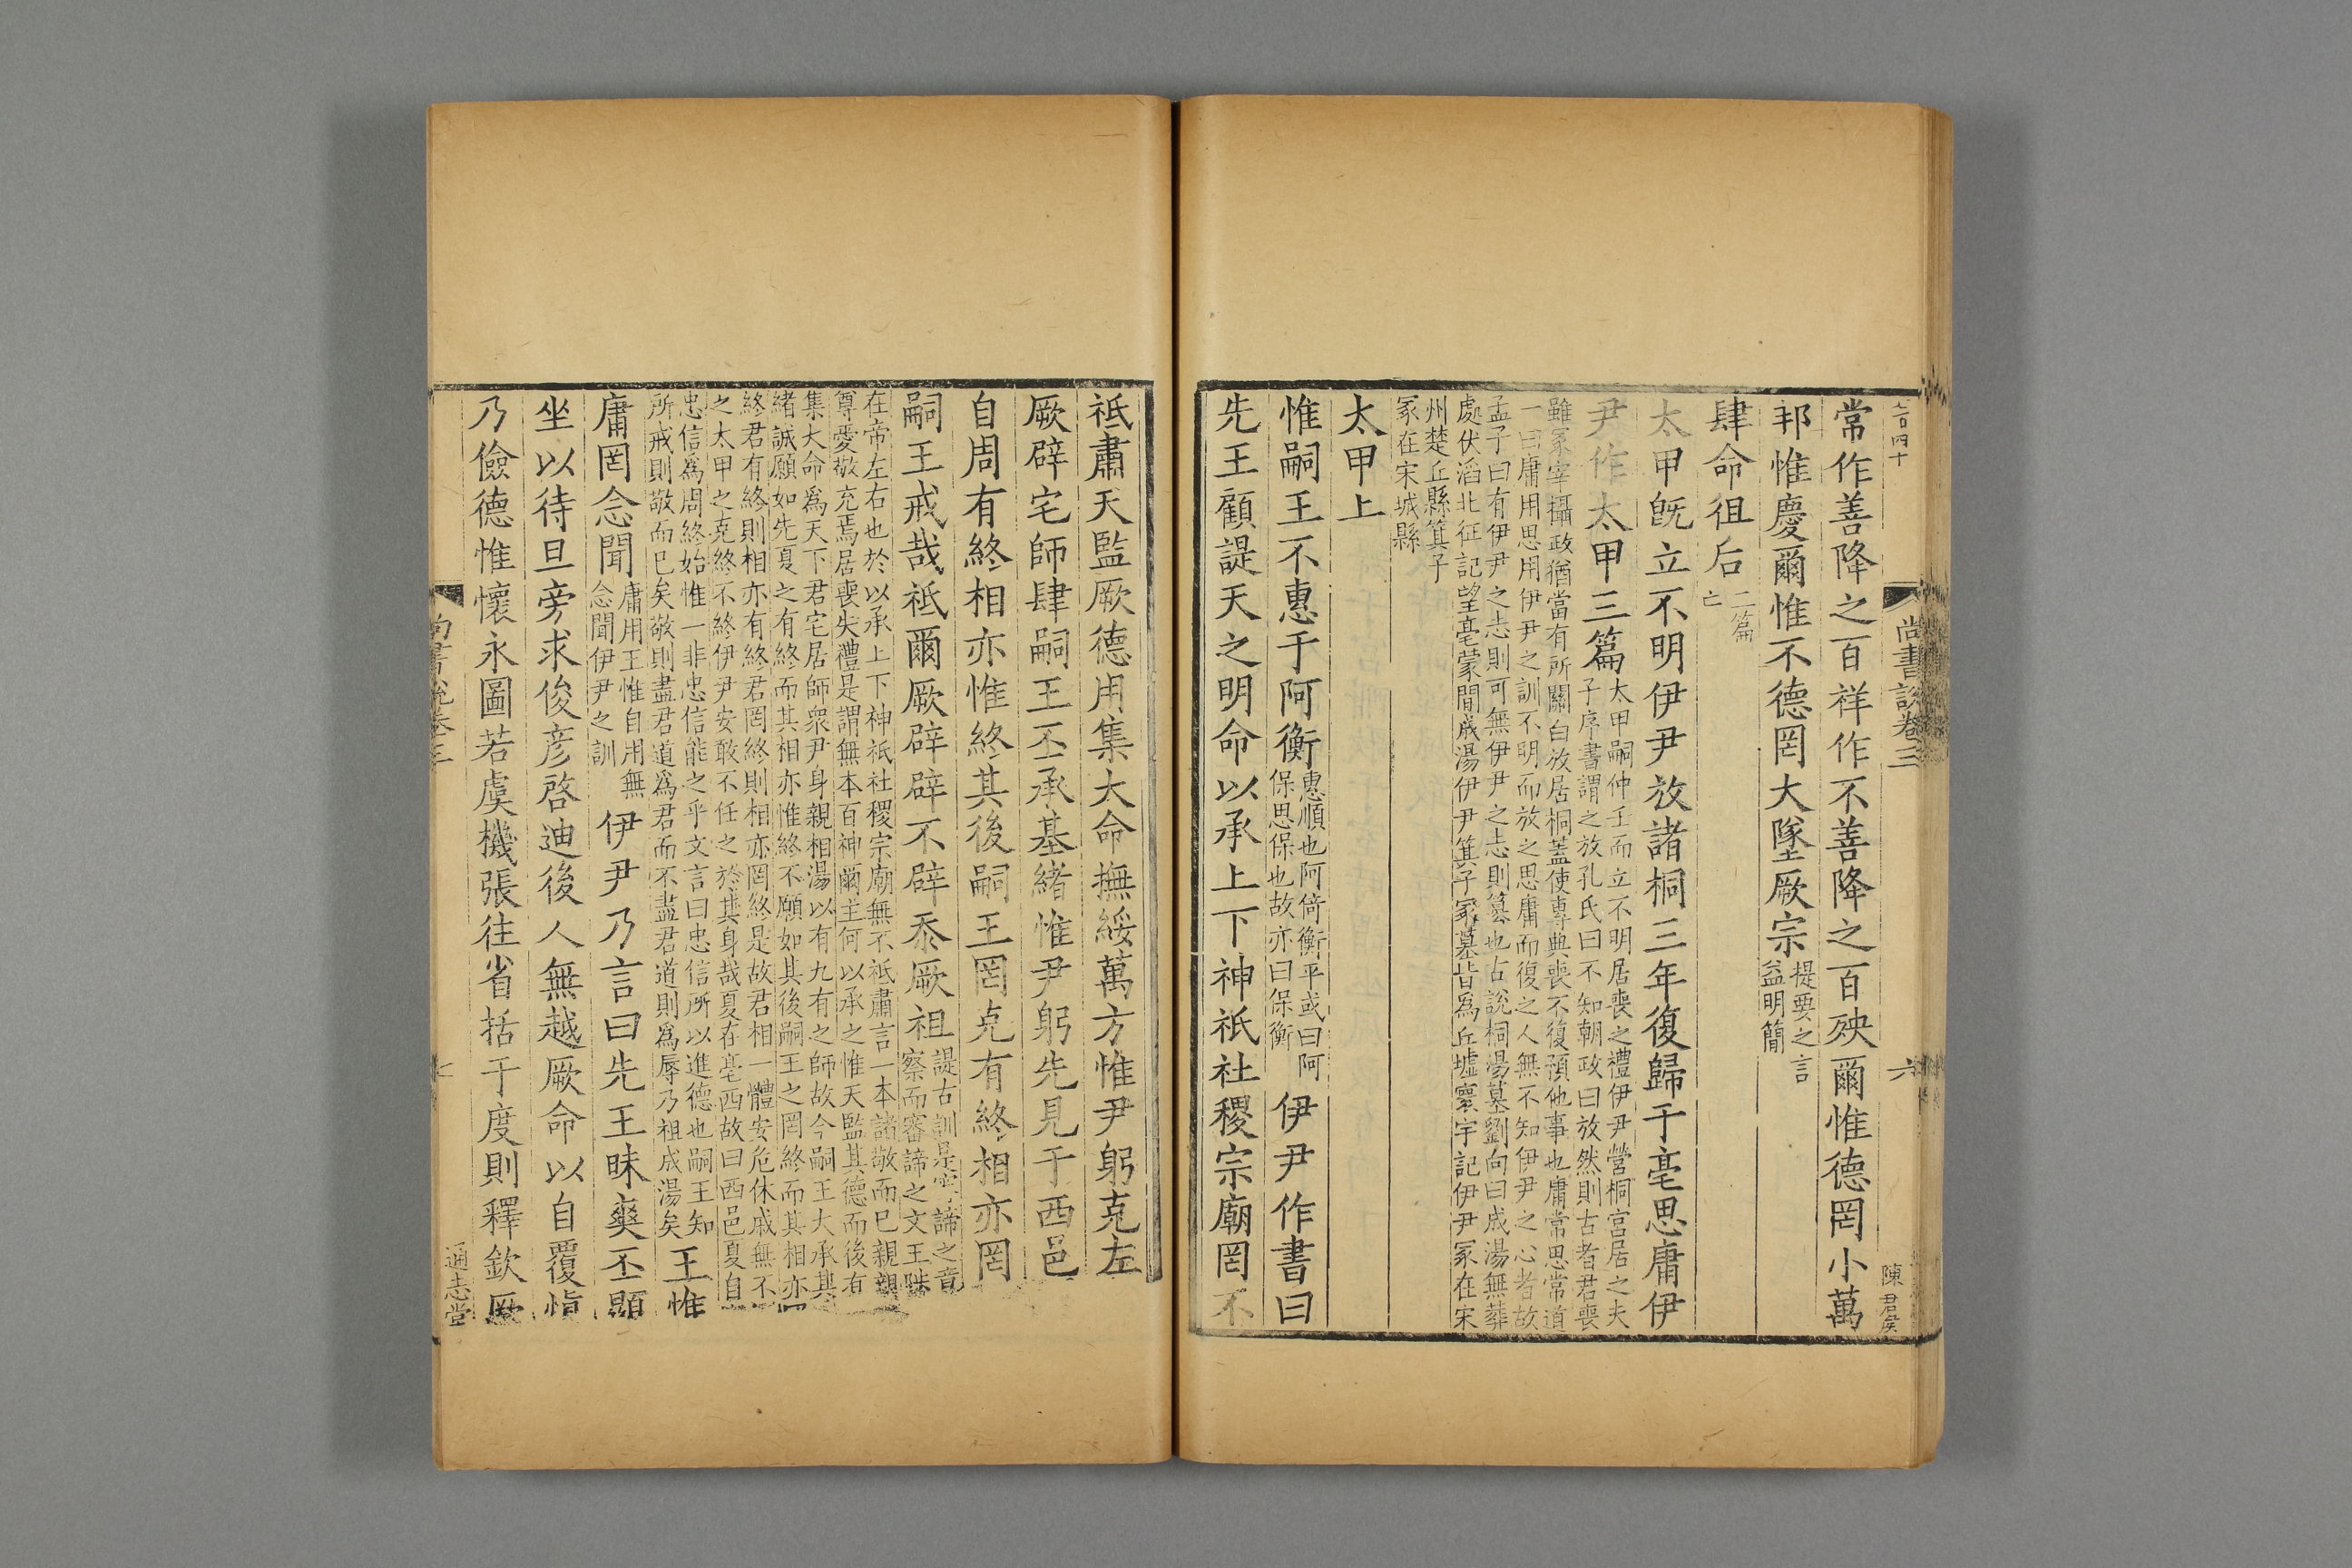 尚書說卷三
六
陳君侯
常作善降之百祥作不善降之百殃爾惟德罔小萬
邦惟慶爾惟不德罔大墜厥宗
提要之言
益明簡
肆命徂后
二篇
亡
太甲旣立不明伊尹放諸桐三年復歸于亳思庸伊
尹作太甲三篇
太甲嗣仲壬而立不明居喪之禮伊尹營桐宮居之夫
子序書謂之放孔氏曰不知朝政曰放然則古者君喪
雖冢宰攝政猶當有所關白放居桐蓋使專典喪不復預他事也庸常思常道
一曰庸用思用伊尹之訓不明而放之思庸而復之人無不知伊尹之心者故
孟子曰有伊尹之志則可無伊尹之志則簒也古說桐湯墓劉向曰成湯無葬
處伏滔北征記望亳蒙間成湯伊尹箕子冢墓皆爲丘墟寰宇記伊尹冢在宋
州楚丘縣箕子
冢在宋城縣
太甲上
惟嗣王不惠于阿衡
惠順也阿倚衡平或曰阿
保思保也故亦曰保衡
伊尹作書曰
先王顧諟天之明命以承上下神祇社稷宗廟罔不
祗肅天監厥德用集大命撫綏萬方惟尹躬克左
厥辟宅師肆嗣王丕承基緒惟尹躬先見于西邑
自周有終相亦惟終其後嗣王罔克有終相亦罔
嗣王戒哉祗爾厥辟辟不辟忝厥祖
諟古訓是審諦之音
察而審諦之文王陟
在帝左右也於以承上下神祇社稷宗廟無不祗肅言一本諸敬而已親親
尊愛敬充焉居喪失禮是謂無本百神爾主何以承之惟天監其德而後有
集大命爲天下君宅居師衆尹身親相湯以有九有之師故今嗣王大承其
緒誠願如先夏之有終而其相亦惟終不願如其後嗣王之罔終而其相亦
終君有終則相亦有終君罔終則相亦罔終是故君相一體安危休戚無不
之太甲之克終不終伊尹安敢不任之於其身哉夏在亳西故曰西邑夏自
忠信爲周終始惟一非忠信能之乎文言曰忠信所以進德也嗣王知
所戒則敬而已矣敬則盡君道爲君而不盡君道則爲辱乃祖成湯矣
王惟
庸罔念聞
庸用王惟自用無
念聞伊尹之訓
伊尹乃言曰先王昧爽丕顯
坐以待旦旁求俊彥啓迪後人無越厥命以自覆愼
乃儉德惟懷永圖若虞機張往省括于度則釋欽厥
尚書說卷三
七
通志堂